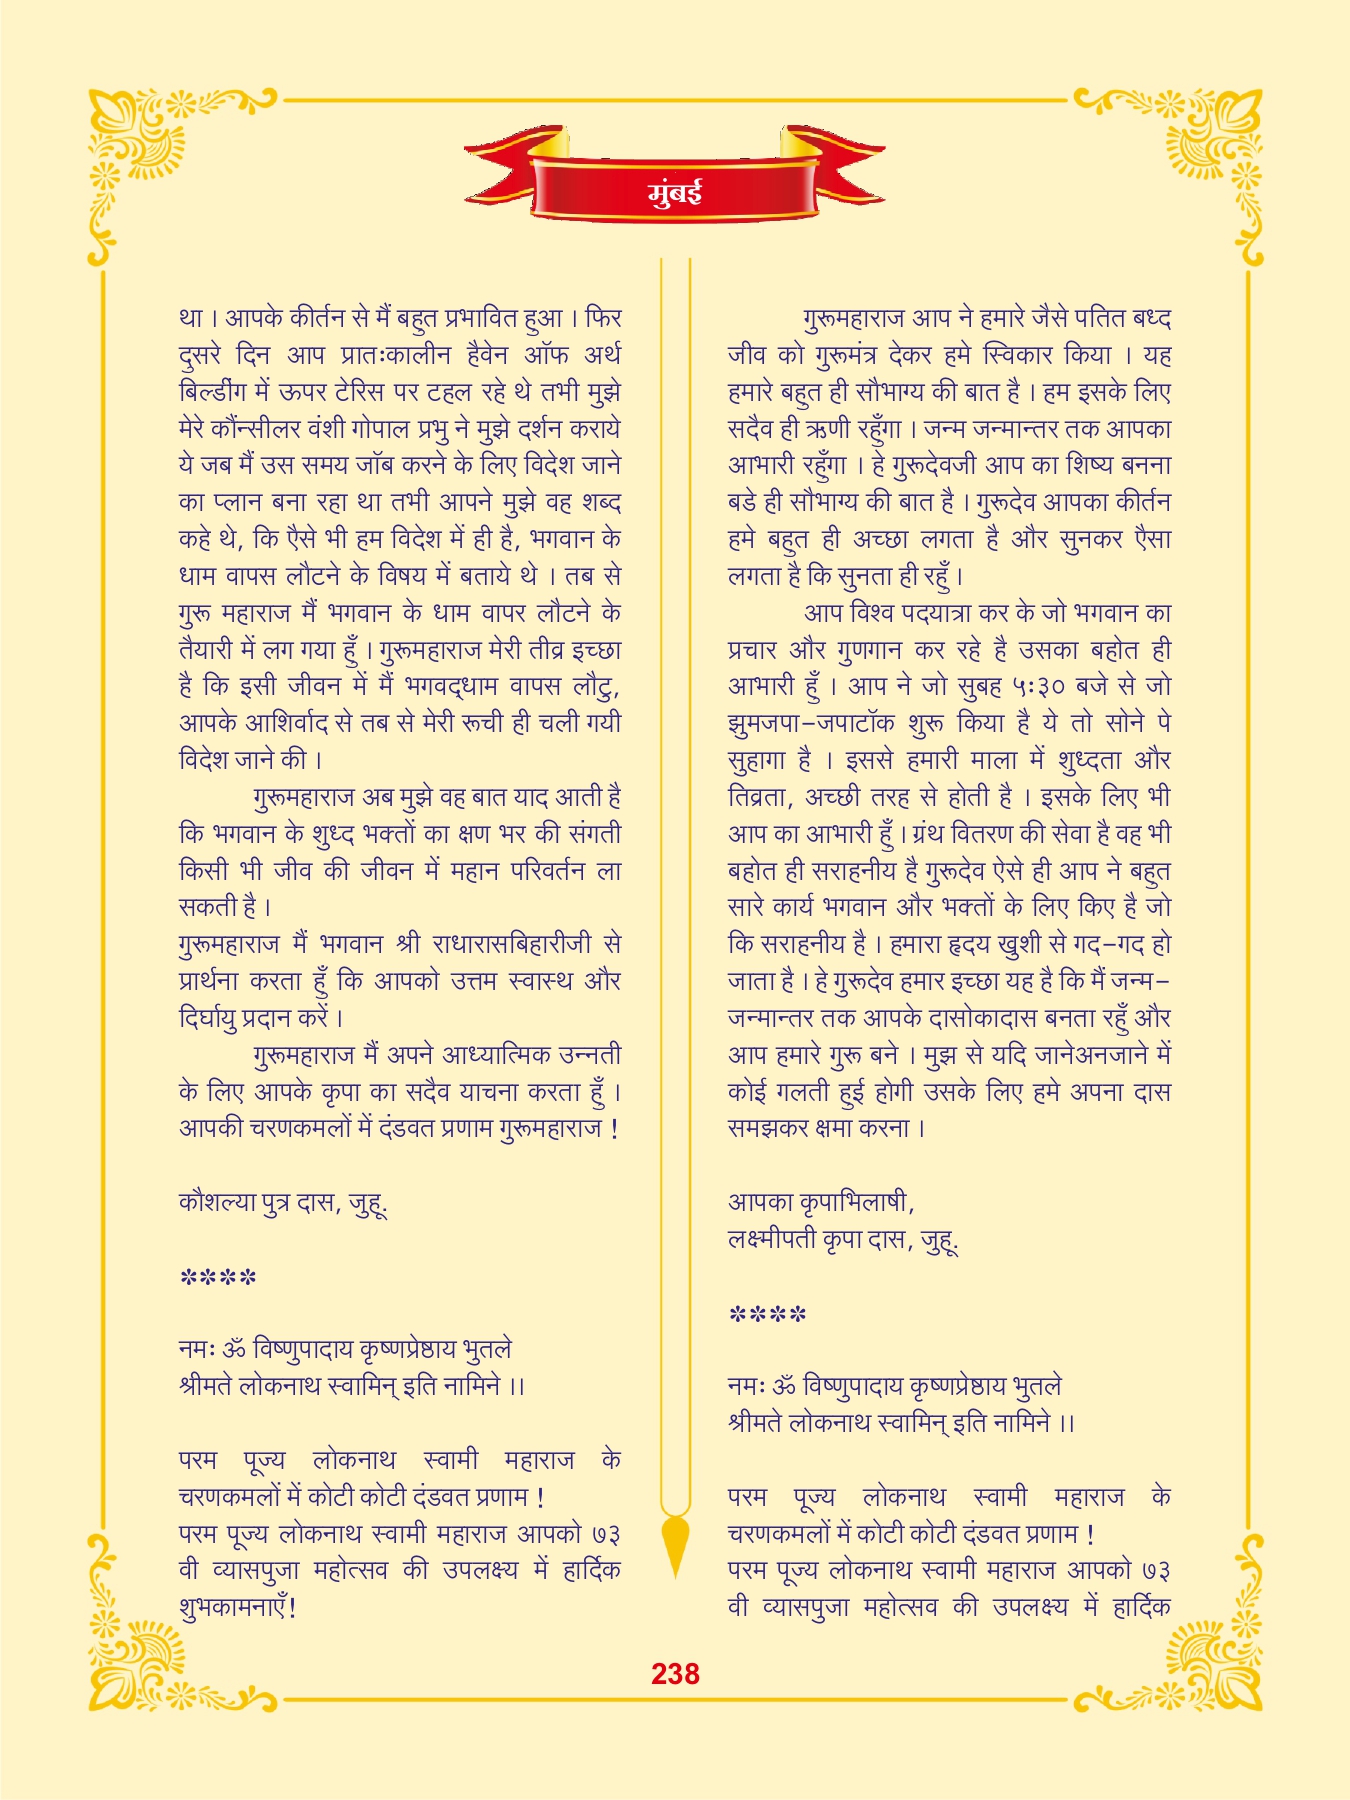 मुंबई
था । आपके कीर्तन से मैं बहुत प्रभावित हुआ । फिर
दुसरे दिन आप प्रातःकालीन हैवेन ऑफ अर्थ
बिल्डींग में ऊपर टेरिस पर टहल रहे थे तभी मुझे
मेरे कौंन्सीलर वंशी गोपाल प्रभु ने मुझे दर्शन कराये
ये जब मैं उस समय जॉब करने के लिए विदेश जाने
का प्लान बना रहा था तभी आपने मुझे वह शब्द
कहे थे, कि ऐसे भी हम विदेश में ही है, भगवान के
धाम वापस लौटने के विषय में बताये थे । तब से
गुरू महाराज मैं भगवान के धाम वापर लौटने के
तैयारी में लग गया हुँ । गुरूमहाराज मेरी तीव्र इच्छा
है कि इसी जीवन में मैं भगवद्धाम वापस लौटु,
आपके आशिर्वाद से तब से मेरी रूची ही चली गयी
विदेश जाने की ।
गुरूमहाराज अब मुझे वह बात याद आती है
कि भगवान के शुध्द भक्तों का क्षण भर की संगती
किसी भी जीव की जीवन में महान परिवर्तन ला
सकती है ।
गुरूमहाराज मैं भगवान श्री राधारासबिहारीजी से
प्रार्थना करता हुँ कि आपको उत्तम स्वास्थ और
दिर्घायु प्रदान करें ।
गुरूमहाराज मैं अपने आध्यात्मिक उन्नती
के लिए आपके कृपा का सदैव याचना करता हुँ ।
आपकी चरणकमलों में दंडवत प्रणाम गुरूमहाराज !
कौशल्या पुत्र दास, जुहू.
****
नमः ॐ विष्णुपादाय कृष्णप्रेष्ठाय भुतले
श्रीमते लोकनाथ स्वामिन् इति नामिने ।।
परम पूज्य लोकनाथ स्वामी महाराज के
चरणकमलों में कोटी कोटी दंडवत प्रणाम !
परम पूज्य लोकनाथ स्वामी महाराज आपको ७३
वी व्यासपुजा महोत्सव की उपलक्ष्य में हार्दिक
शुभकामनाएँ!
गुरूमहाराज आप ने हमारे जैसे पतित बध्द
जीव को गुरूमंत्र देकर हमे स्विकार किया । यह
हमारे बहुत ही सौभाग्य की बात है । हम इसके लिए
सदैव ही ऋणी रहुँगा । जन्म जन्मान्तर तक आपका
आभारी रहुँगा । हे गुरूदेवजी आप का शिष्य बनना
बडे ही सौभाग्य की बात है । गुरूदेव आपका कीर्तन
हमे बहुत ही अच्छा लगता है और सुनकर एैसा
लगता है कि सुनता ही रहुँ ।
आप विश्व पदयात्रा कर के जो भगवान का
प्रचार और गुणगान कर रहे है उसका बहोत ही
आभारी हुँ । आप ने जो सुबह ५:३० बजे से जो
झुमजपा-जपाटॉक शुरू किया है ये तो सोने पे
सुहागा है । इससे हमारी माला में शुध्दता और
तिव्रता, अच्छी तरह से होती है । इसके लिए भी
आप का आभारी हुँ । ग्रंथ वितरण की सेवा है वह भी
बहोत ही सराहनीय है गुरूदेव ऐसे ही आप ने बहुत
सारे कार्य भगवान और भक्तों के लिए किए है जो
कि सराहनीय है । हमारा हृदय खुशी से गद-गद हो
जाता है । हे गुरूदेव हमार इच्छा यह है कि मैं जन्म-
जन्मान्तर तक आपके दासोकादास बनता रहुँ और
आप हमारे गुरू बने । मुझ से यदि जानेअनजाने में
कोई गलती हुई होगी उसके लिए हमे अपना दास
समझकर क्षमा करना ।
आपका कृपाभिलाषी,
लक्ष्मीपती कृपा दास, जुहू.
****
नमः ॐ विष्णुपादाय कृष्णप्रेष्ठाय भुतले
श्रीमते लोकनाथ स्वामिन् इति नामिने ।।
परम पूज्य लोकनाथ स्वामी महाराज के
चरणकमलों में कोटी कोटी दंडवत प्रणाम !
परम पूज्य लोकनाथ स्वामी महाराज आपको ७३
वी व्यासपुजा महोत्सव की उपलक्ष्य में हार्दिक
238